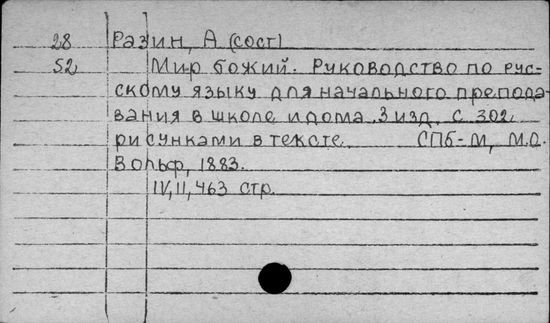 28 Разин, А (сост)
52 Мир божий. Руководство по рус-
скому языку для начального препода-
вания в школе и дома. 3 изд. с 302
рисунками в тексте. СПб-М, М.О.
Вольф, 1883.
IV, II, 463 стр.